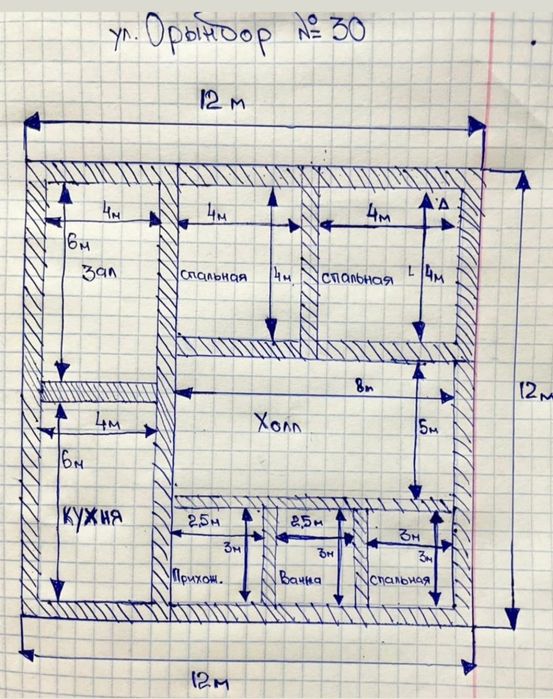 ул. Орынбор № 30
12 м
4м
4м
4м
6м
Зал
спальная
4м
спальная
4м
8м
12м
4м
Холл
5м
6м
Кухня
2,5м
2,5м
3м
3м
3м
3м
Прихож.
Ванна
спальная
12м